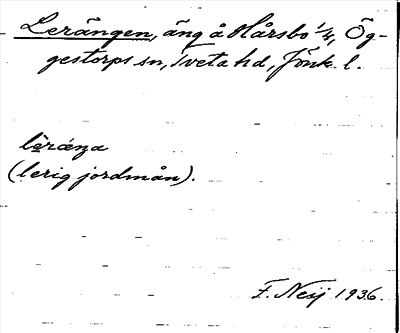 Lerängen, äng å Hårsbo 1/4, Ög-
gestorps sn, Tveta hd, Jönk. l.
lèràŋa
(lerig jordmån).
F. Neij 1936.